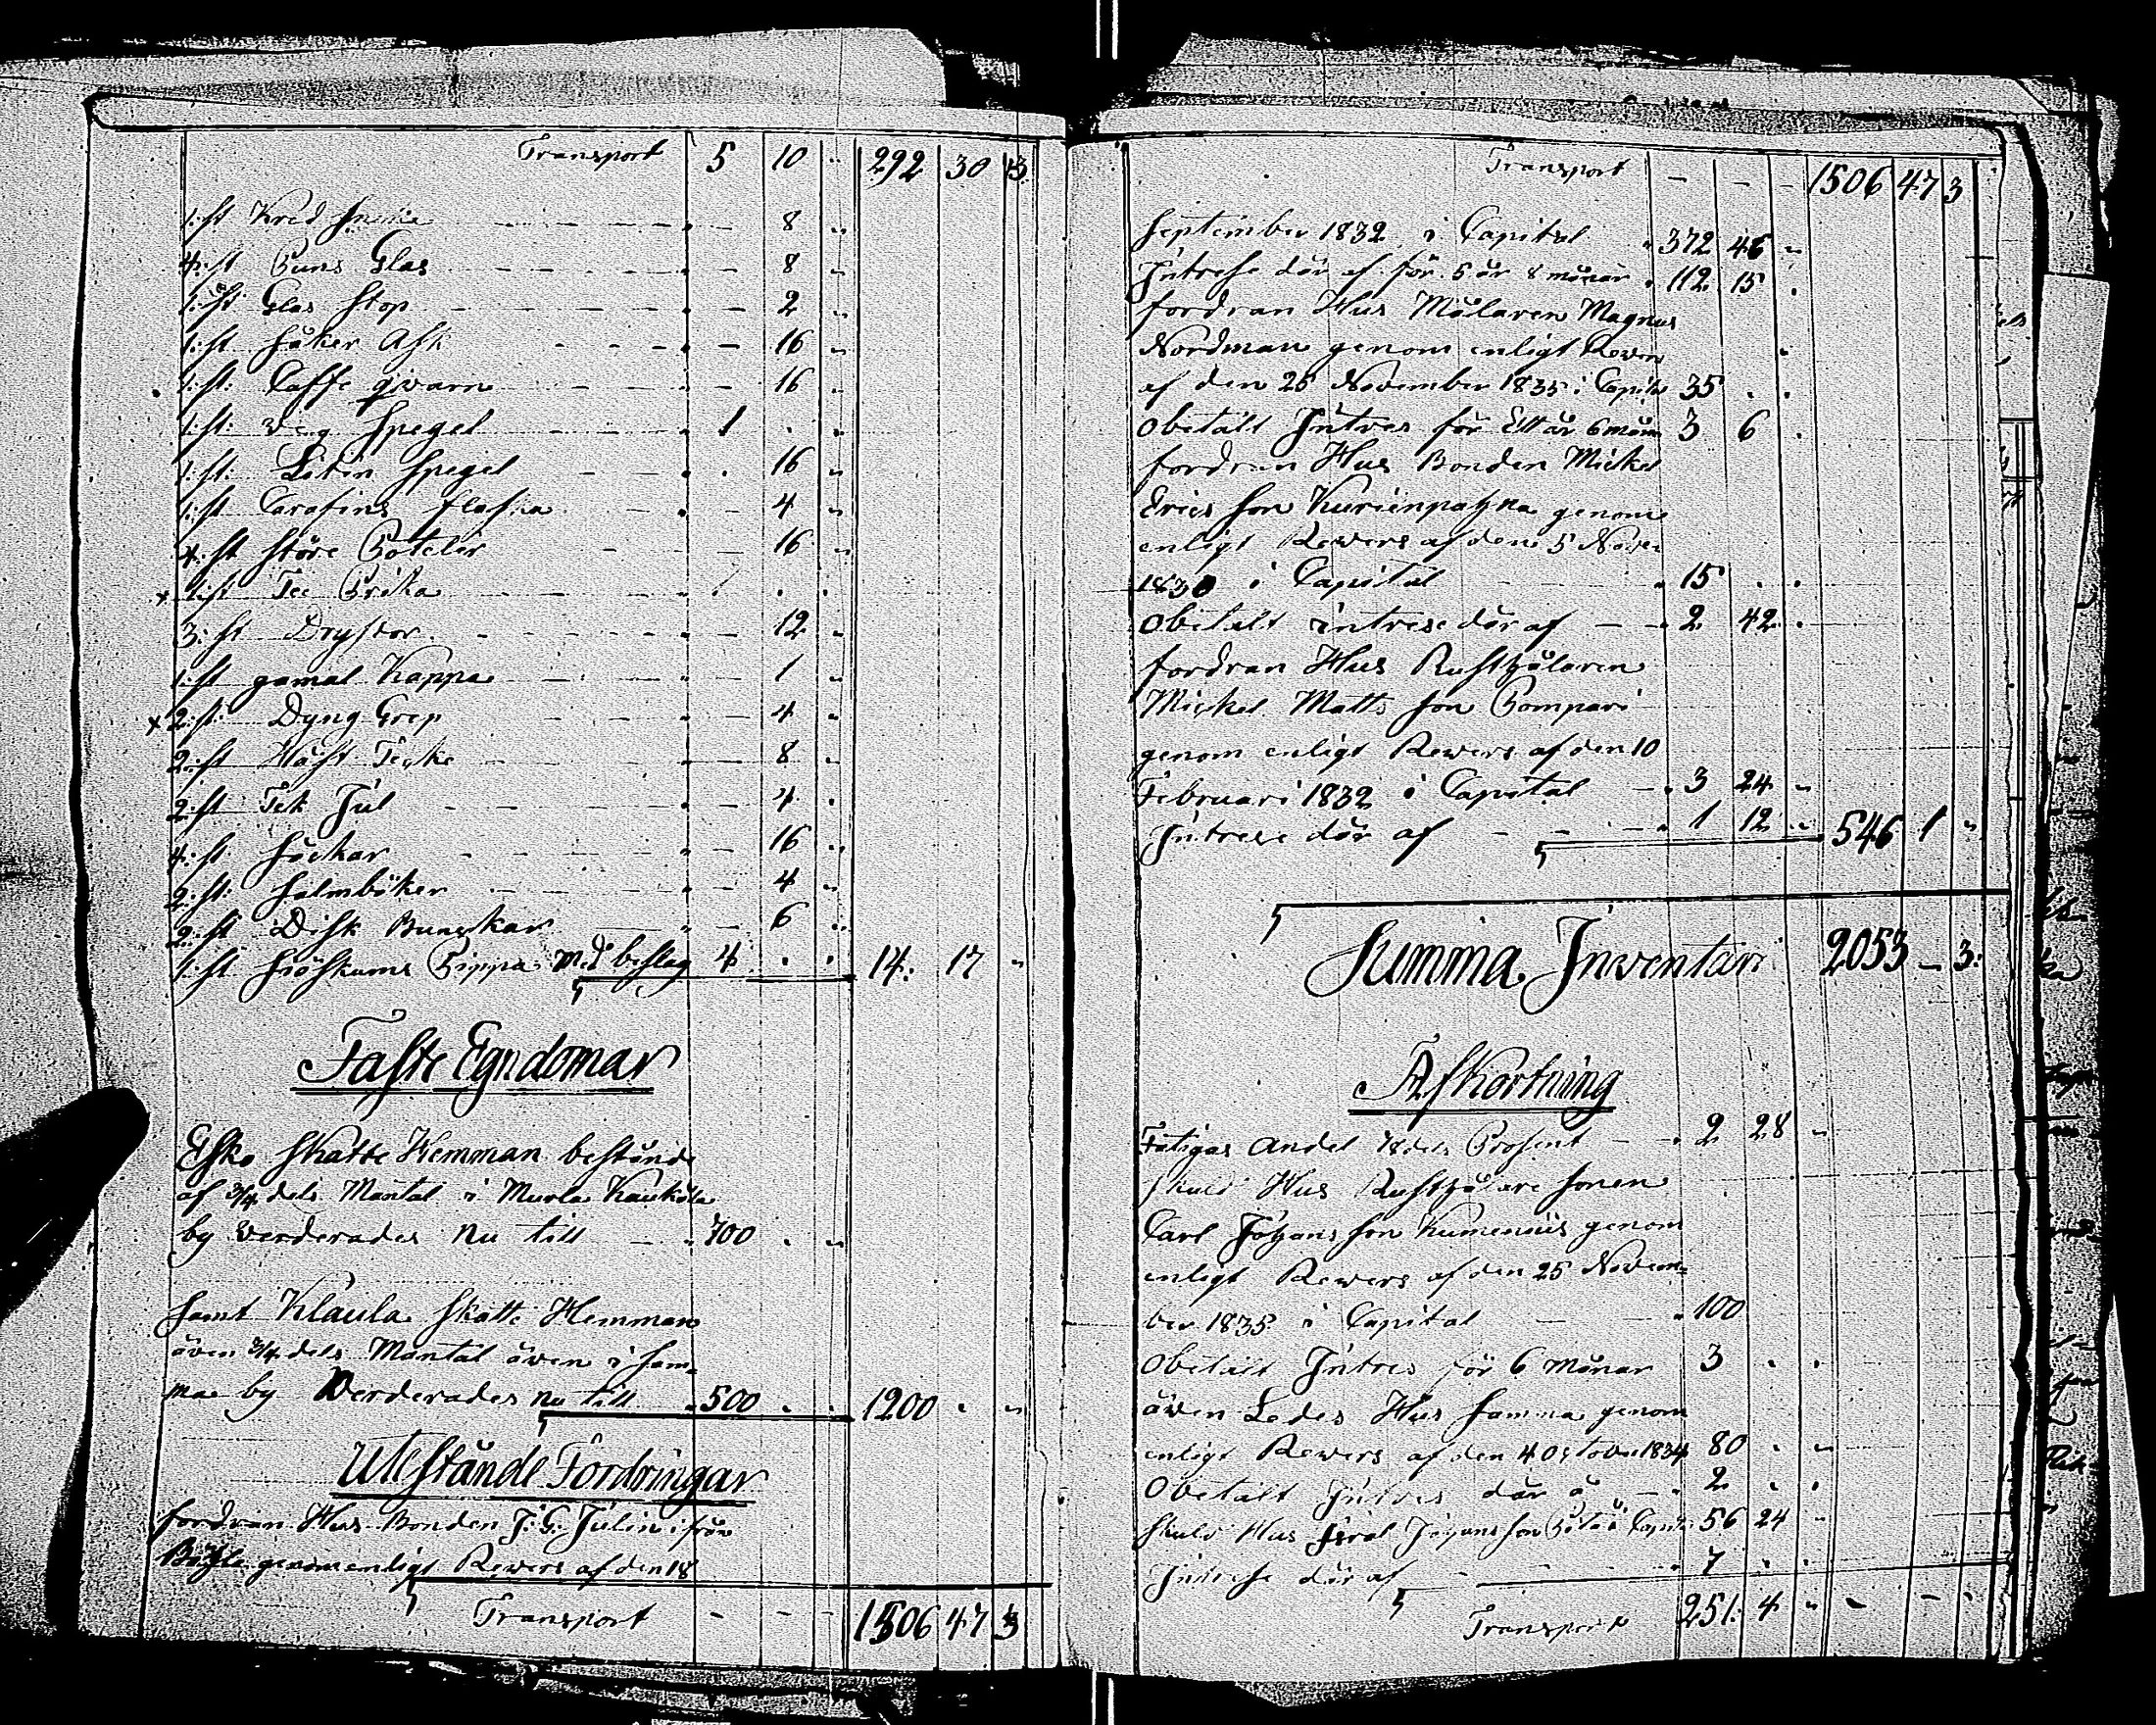 Transport 5 10 " 292 30 3
1: st Kred 8 "
4: st Puns Glas 8 "
1: st Glas Stop 2 "
1: st Såker Ask 16 "
1: st: Caffe qvarn 16 "
1: st: Spegel 1 . "
1: st: Liten Spegel 16 "
1: st Carafins flaska 4 "
4: st störe Boteler 16 "
1: st Tee Brika . .
3: st 12 "
1: st gamal Kappa 1 "
2: st: Dyng Grep 4 "
2: st Häst 8 "
2: st Jul 4 .
4: st Säckar 16 "
2: st: Salmböker 4 "
2: st Disk Bunskar 6 "
1: st Siöskums Pippa Med beslag 4 . . 14. 17 "
Faste Egndomar
Esko Skatte Hemman bestånde
af 3/4 dels Mantal i Murla
by verderades nu till 700 . "
Samt Klaula Skatte Hemman
även 3/4 dels Mantal även i Sam=
ma by Verderades nu till 500 . . 1200 . "
Utestånde Fordringar
fordran Hus Bonden J: G: Julin ifrån
Böhle genom enligt Rewers af den 18
Transport - - - 1506 47 3
Transport - - - 1506 47 3
September 1832 i Capital 372 46 "
Intresse där af för 5 år 8 månar 112 15 .
fordran Hus Målaren Magnus
Nordman genom enligt Rewers
af den 25 November 1835 i Capital 35 . .
Obetalt Intres för Ett år 6 mån 3 6 .
fordran Hus Bonden Mickel
Erics Son genom
enligt Rewers af den 5 Novem
1830 i Capital 15 . .
Obetalt intrese där af 2 42 .
fordran Hus Rusthålaren
Mickel Matts Son Bompari
genom enligt Rewers af den 10
Februari 1832 i Capital 3 24 "
Intrese där af 1 12 " 546 1 "
Summa Inventari 2053 - 3:
Afkortning
Fatigas Andel 1/8 dels Prosent 2 28 "
Skuld Hus Rusthålare Sonen
Carl Johans Son genom
enligt Rewers af den 25 Novem=
ber 1835 i Capital 100
Obetalt Intres för 6 månar 3 . .
även Ledes Hus Samma genom
enligt Rewers af den 4 October 1834 80 . "
Obetalt Intres där å 2 . .
Skuld Hus Johans Son 56 24 "
Intresse där af 7 . .
Transport 251: 4 " - - .